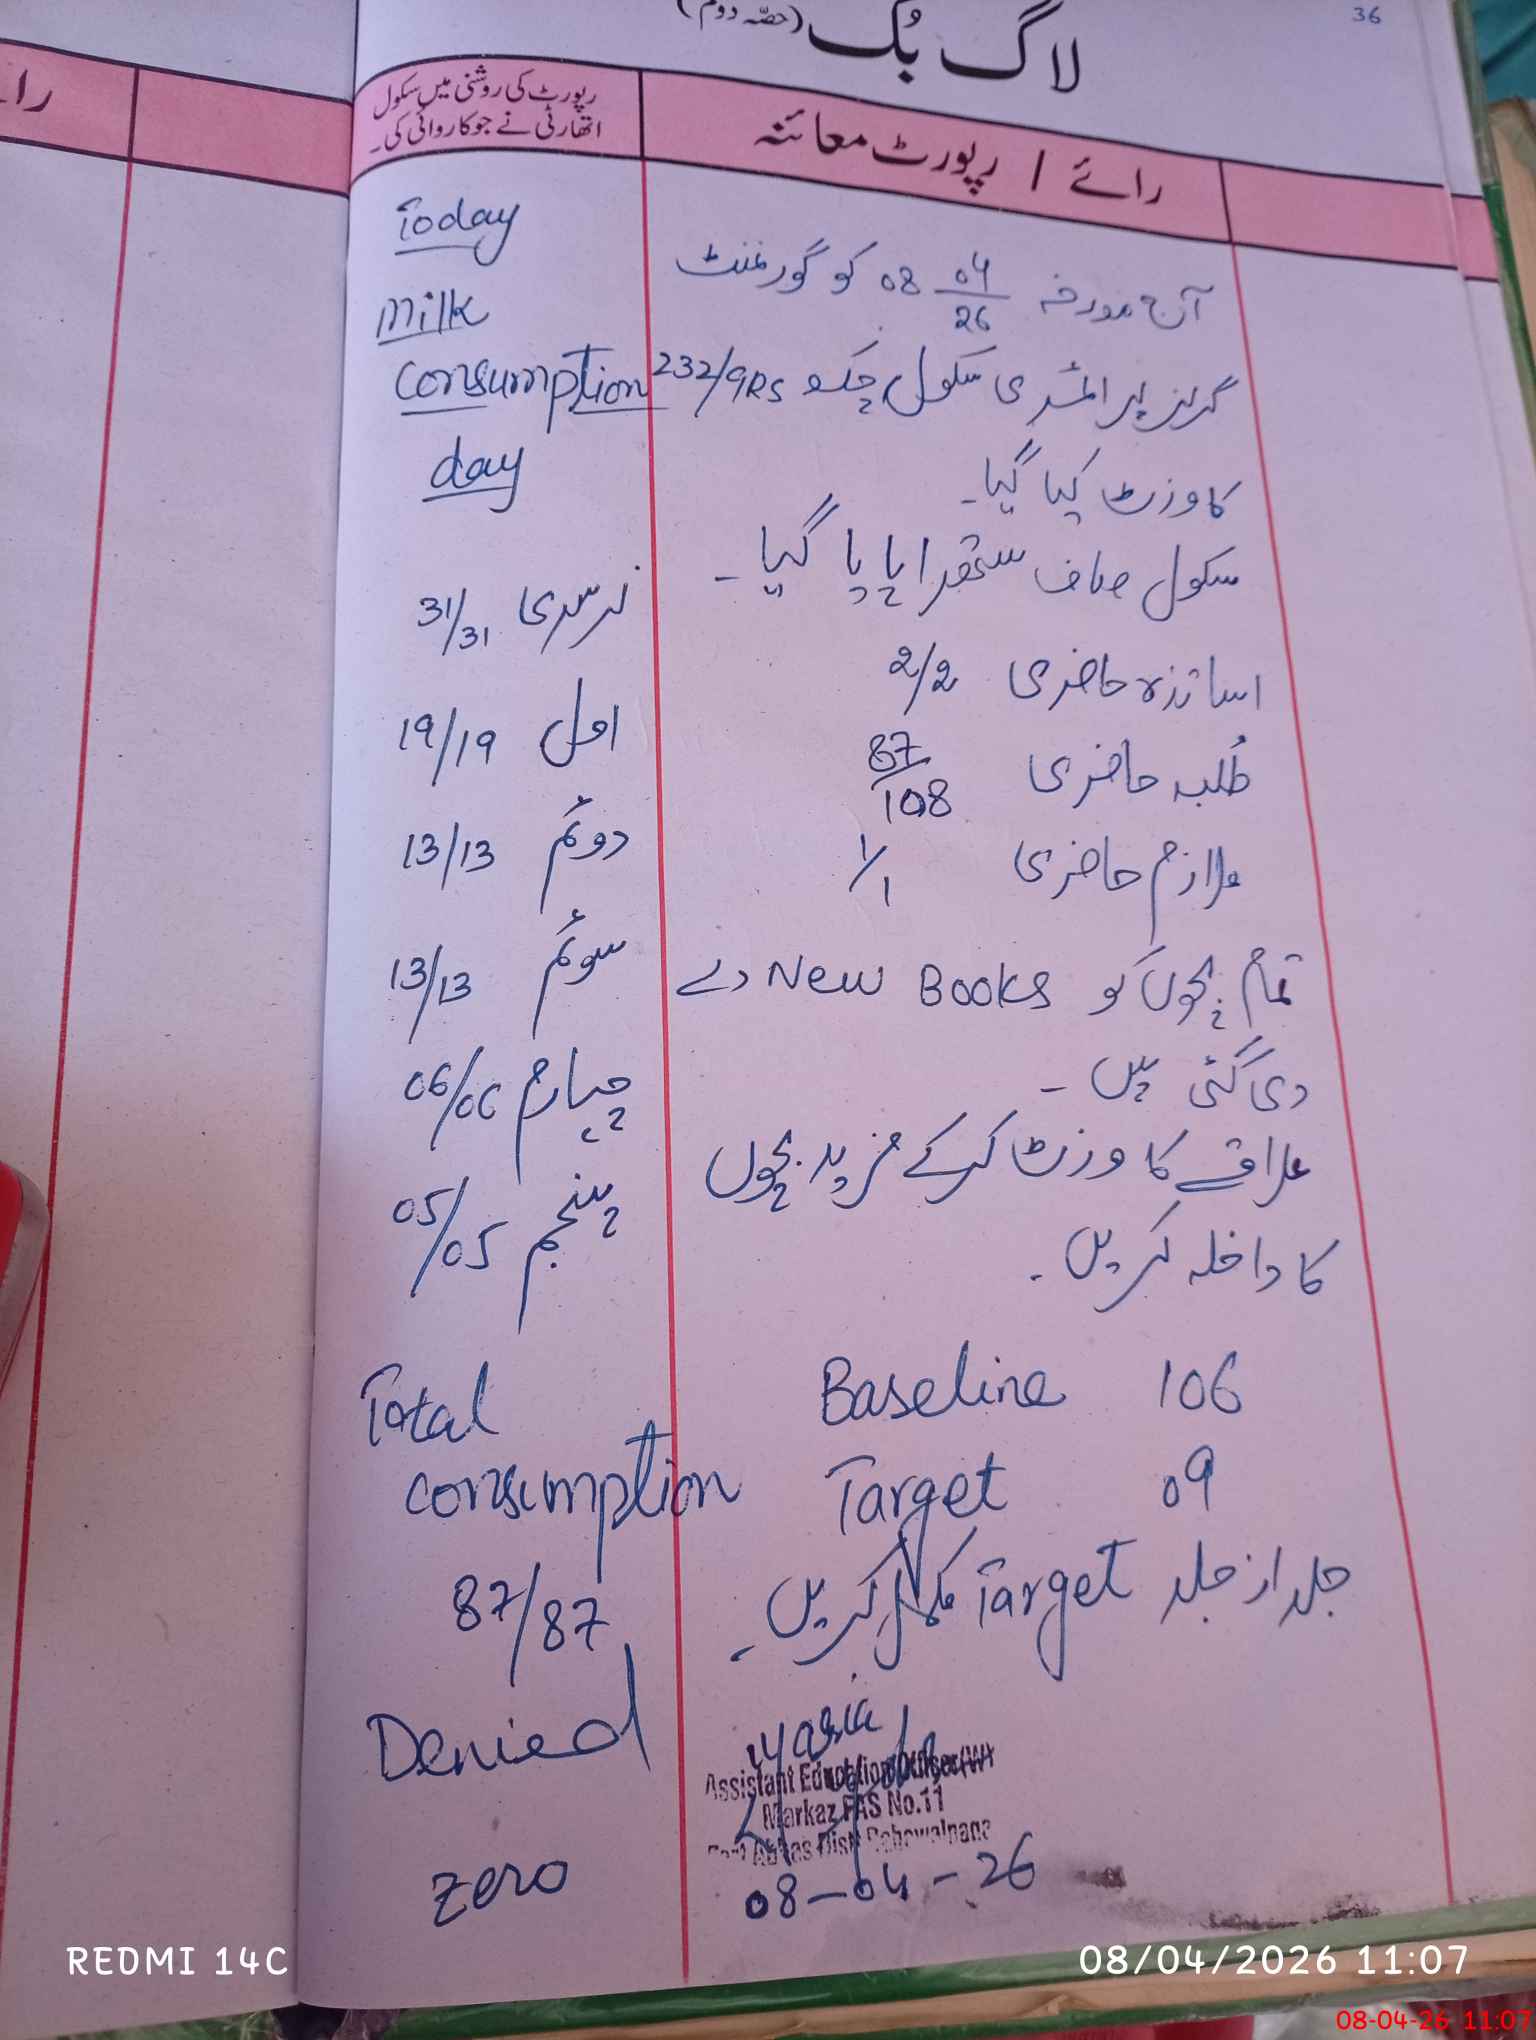 36
لاگ بُک (حصّہ دوم)
رائے / رپورٹ معائنہ
رپورٹ کی روشنی میں سکول
اتھارٹی نے جو کاروائی کی۔
آج مورخہ 08 04/26 کو گورنمنٹ
گرلز پرائمری سکول چک 232/9RS
کا وزٹ کیا گیا۔
سکول صاف ستھرا پایا گیا۔
اساتذہ حاضری 2/2
طُلبہ حاضری 87/108
ملازم حاضری 1/1
تمام بچوں کو New Books دے
دی گئی ہیں۔
علاقے کا وزٹ کرکے مزید بچوں
کا داخلہ کریں۔
Baseline 106
Target 09
جلد از جلد Target مکمل کریں۔
Assistant Education Officer (W)
Markaz FAS No.11
Abbas Distt Bahawalnagar
08-04-26
Today
Milk
Consumption
day
نرسری 31/31
اول 19/19
دوئم 13/13
سوئم 13/13
چہارم 06/06
پنجم 05/05
Total
consumption
87/87
Denied
zero
را
REDMI 14C
08/04/2026 11:07
08-04-26 11:07